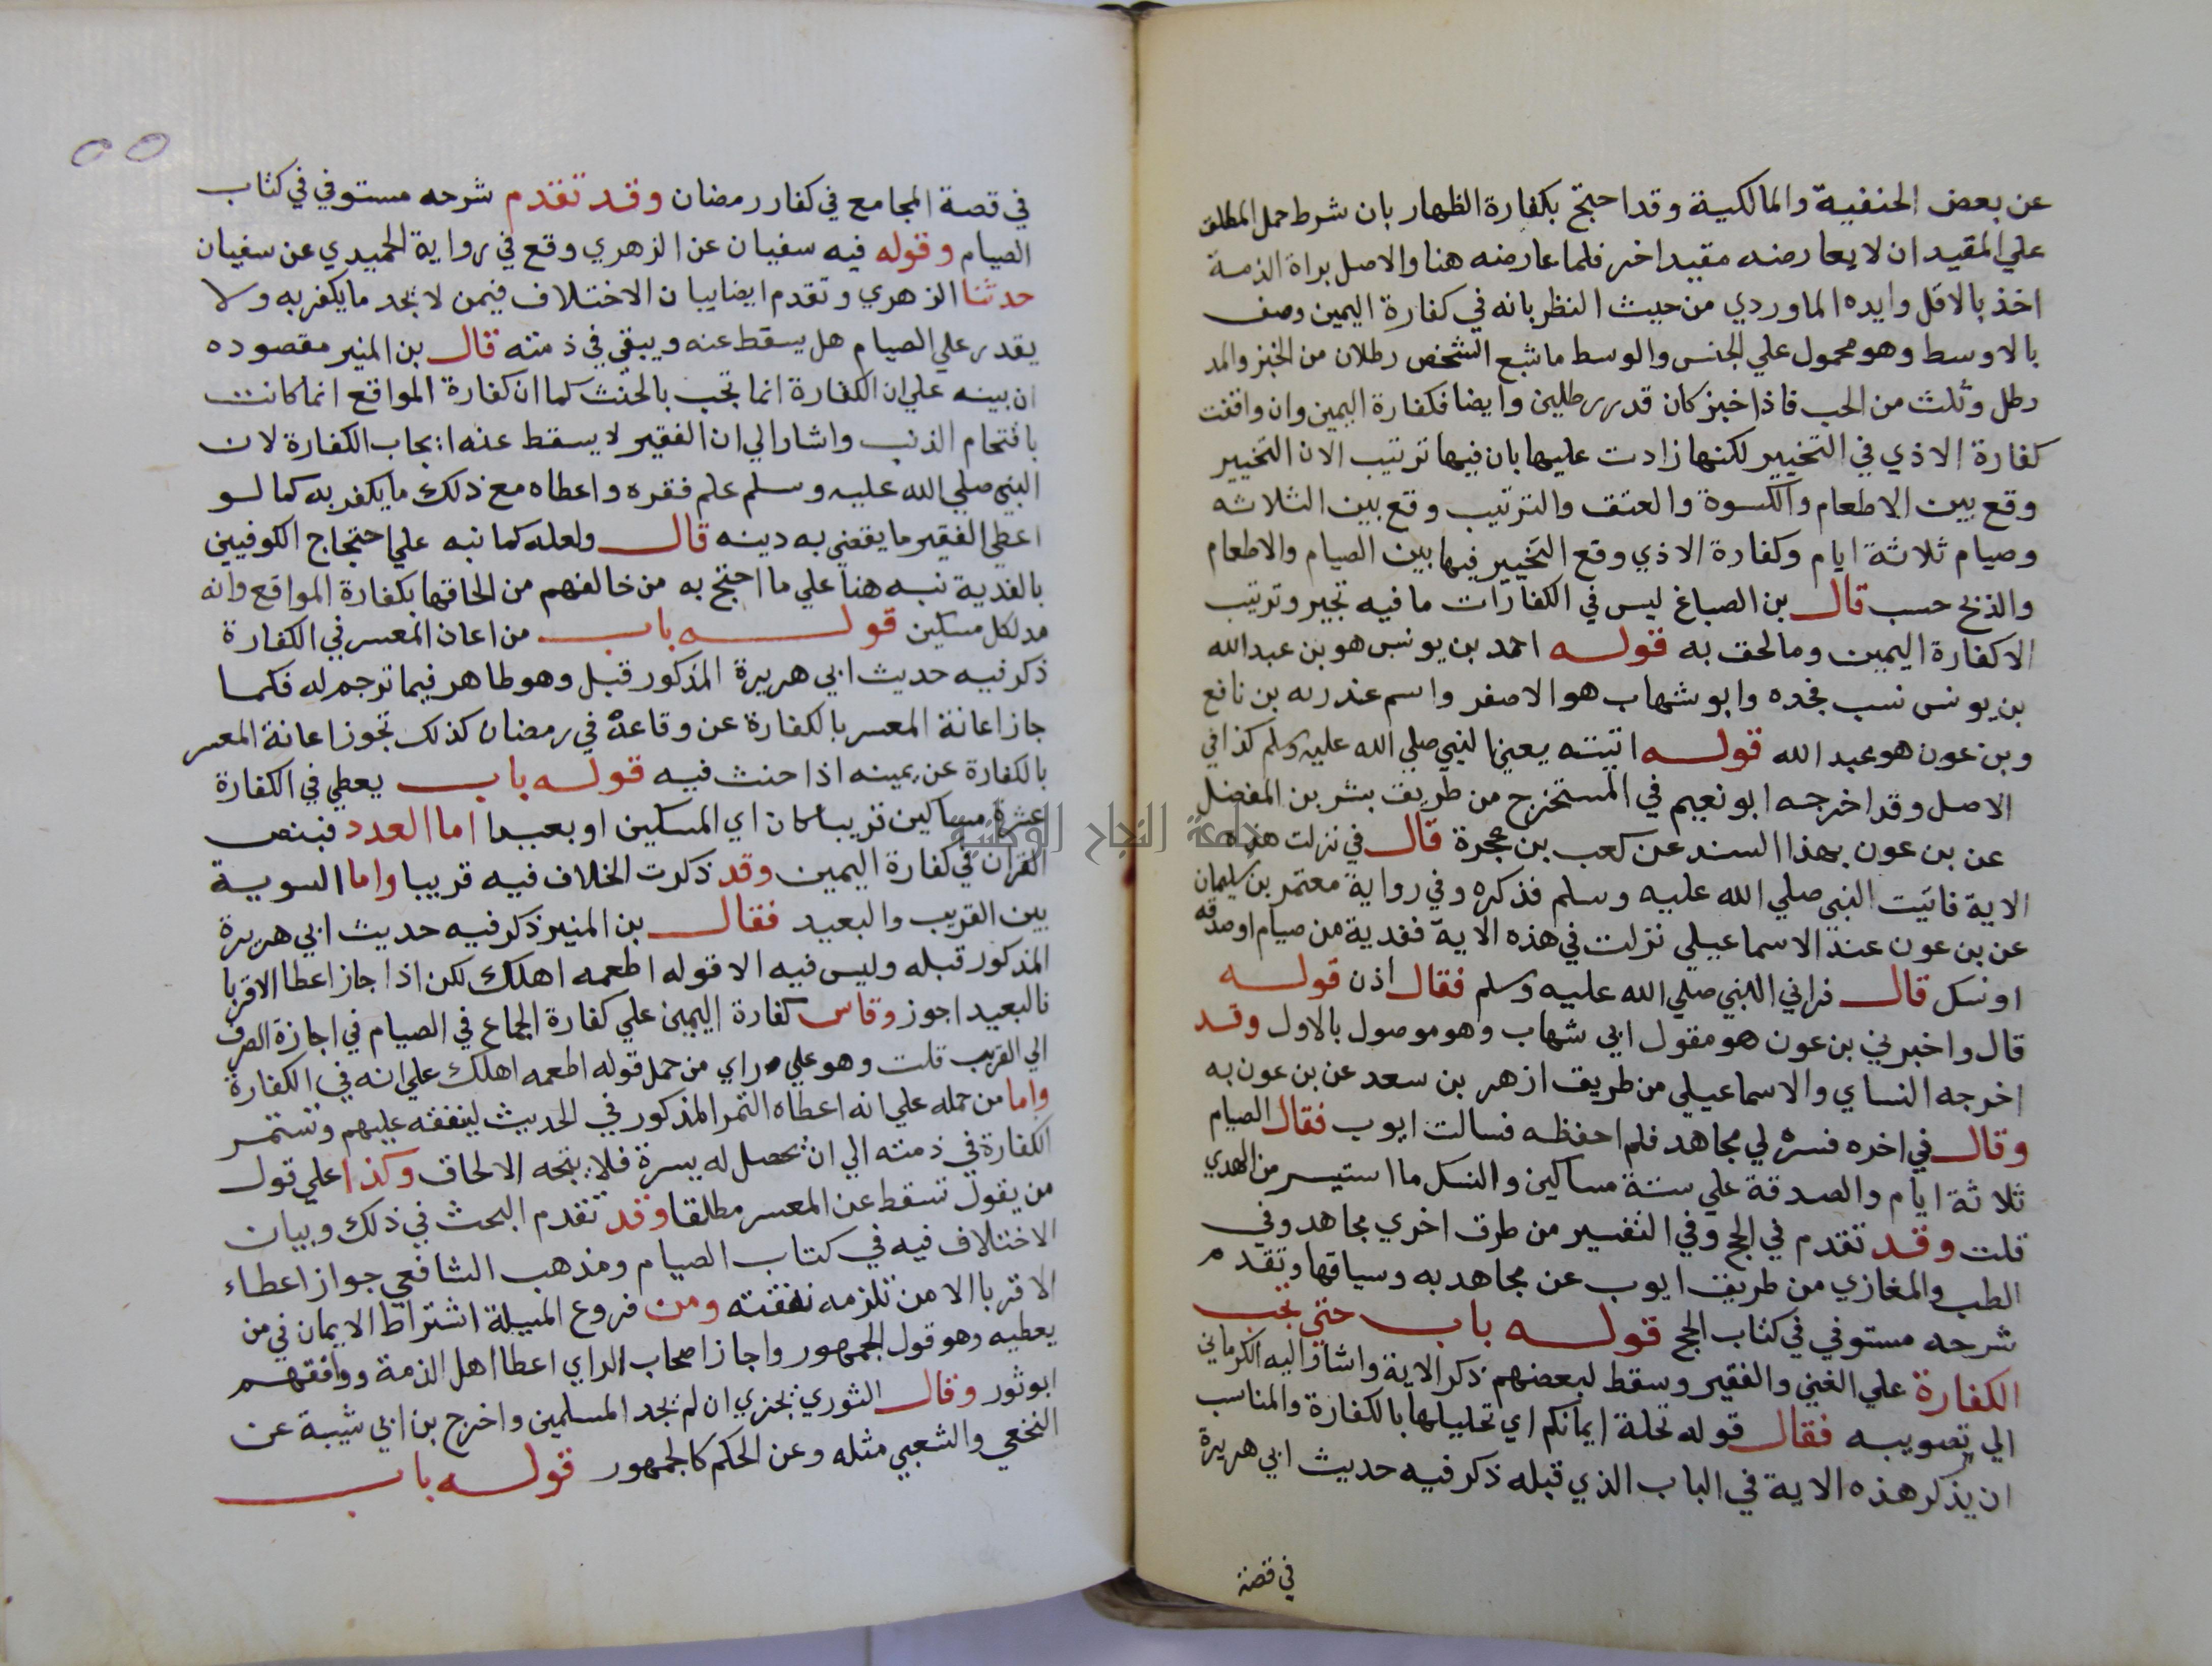 عن بعض الحنفية والمالكية وقد احتج بكفارة الظهار بان شرط حمل المطلق
علي المقيد ان لا يعارضه مقيد اخر فلما عارضه هنا والاصل براة الذمة
اخذ بالاقل وايده الماوردي من حيث النظر بانه في كفارة اليمين وصف
بالاوسط وهو محمول علي الجنس والوسط ما شبع الشخص رطلان من الخبز والمد
رطل وثلث من الحب فاذا خبز كان قدر رطلين وايضا فكفارة اليمين وان وافقت
كفارة الاذي في التخيير لكنها زادت عليها بان فيها ترتيب الان التخيير
وقع بين الاطعام والكسوة والعتق والترتيب وقع بين الثلاثه
وصيام ثلاثة ايام وكفارة الاذي وقع التخيير فيها بين الصيام والاطعام
والذبح حسب قال بن الصباغ ليس في الكفارات ما فيه تخيير وترتيب
الا كفارة اليمين وما لحق به قوله احمد بن يونس هو بن عبد الله
بن يونس نسب لجده وابو شهاب هو الاصفر واسم عند ربه بن نافع
وبن عون هو عبد الله قوله اتيته يعني النبي صلي الله عليه وسلم كذا في
الاصل وقد اخرجه ابو نعيم في المستخرج من طريق بشر بن المفضل
عن بن عون بهذا السند عن كعب بن عجرة قال في نزلت هذه
الاية فاتيت النبي صلي الله عليه وسلم فذكره وفي رواية معتمر بن سليمان
عن بن عون عند الاسماعيلي نزلت في هذه الاية ففدية من صيام او صدقه
او نسك قال فراني النبي صلي الله عليه وسلم فقال اذن قوله
قال واخبرني بن عون هو مقول ابي شهاب وهو موصول بالاول وقد
اخرجه النساي والاسماعيلي من طريق ازهر بن سعد عن بن عون به
وقال في اخره فسره لي مجاهد فلم احفظه فسالت ايوب فقال الصيام
ثلاثة ايام والصدقة علي ستة مساكين والنسك ما استيسر من الهدي
قلت وقد تقدم في الحج وفي التفسير من طرق اخري مجاهد وفي
الطب والمغازي من طريق ايوب عن مجاهد به وسياقها وتقدم
شرحه مستوفي في كتاب الحج قوله باب حتي تجب
الكفارة علي الغني والفقير وسقط لبعضهم ذكر الاية واشار اليه الكرماني
الي تصويبه فقال قوله تحلة ايمانكم اي تحليلها بالكفارة والمناسب
ان يذكر هذه الاية في الباب الذي قبله ذكر فيه حديث ابي هريرة
في قصة
٥٥
في قصة المجامع في كفار رمضان وقد تقدم شرحه مستوفي في كتاب
الصيام وقوله فيه سفيان عن الزهري وقع في رواية الحميدي عن سفيان
حدثنا الزهري وتقدم ايضا بيان الاختلاف فيمن لا يجد ما يكفر به ولا
يقدر علي الصيام هل يسقط عنه ويبقي في ذمته قال بن المنير مقصوده
ان بينه علي ان الكفارة انما تجب بالحنث كما ان كفارة المواقع انما كانت
باقتحام الذنب واشار الي ان الفقير لا يسقط عنه ايجاب الكفارة لان
النبي صلي الله عليه وسلم علم فقره واعطاه مع ذلك ما يكفر به كما لو
اعطي الفقير ما يقضي به دينه قال ولعله كما نبه علي احتجاج الكوفيين
بالفدية نبه هنا علي ما احتج به من خالفهم من الحاقها بكفارة المواقع وانه
مد لكل مسكين قوله باب من اعان المعسر في الكفارة
ذكر فيه حديث ابي هريرة المذكور قبل وهو ظاهر فيما ترجم له فكما
جاز اعانة المعسر بالكفارة عن وقاعه في رمضان كذلك تجوز اعانة المعسر
بالكفارة عن يمينه اذا حنث فيه قوله باب يعطي في الكفارة
عشرة مساكين قريبا كان اي المسكين او بعيدا اما العدد فبنص
القران في كفارة اليمين وقد ذكرت الخلاف فيه قريبا واما السوية
بين القريب والبعيد فقال بن المنير ذكر فيه حديث ابي هريرة
المذكور قبله وليس فيه الا قوله اطعمه اهلك لكن اذا جاز اعطا الاقربا
فالبعيد اجوز وقاس كفارة اليمين علي كفارة الجماع في الصيام في اجازة الصرف
الي القريب قلت وهو علي راي من حمل قوله اطعمه اهلك علي انه في الكفارة
واما من حمله علي انه اعطاه التمر المذكور في الحديث لينفقه عليهم وتستمر
الكفارة في ذمته الي ان يحصل له يسرة فلا يتجه الالحاق وكذا علي قول
من يقول تسقط عن المعسر مطلقا وقد تقدم البحث في ذلك وبيان
الاختلاف فيه في كتاب الصيام ومذهب الشافعي جواز اعطاء
الاقربا الا من تلزمه نفقته ومن فروع المسيلة اشتراط الايمان في من
يعطيه وهو قول الجمهور واجاز اصحاب الراي اعطا اهل الذمة ووافقهم
ابو ثور وقال الثوري يجزي ان لم يجد المسلمين واخرج بن ابي شيبة عن
النخعي والشعبي مثله وعن الحكم كالجمهور قوله باب
جامعة النجاح الوطنية